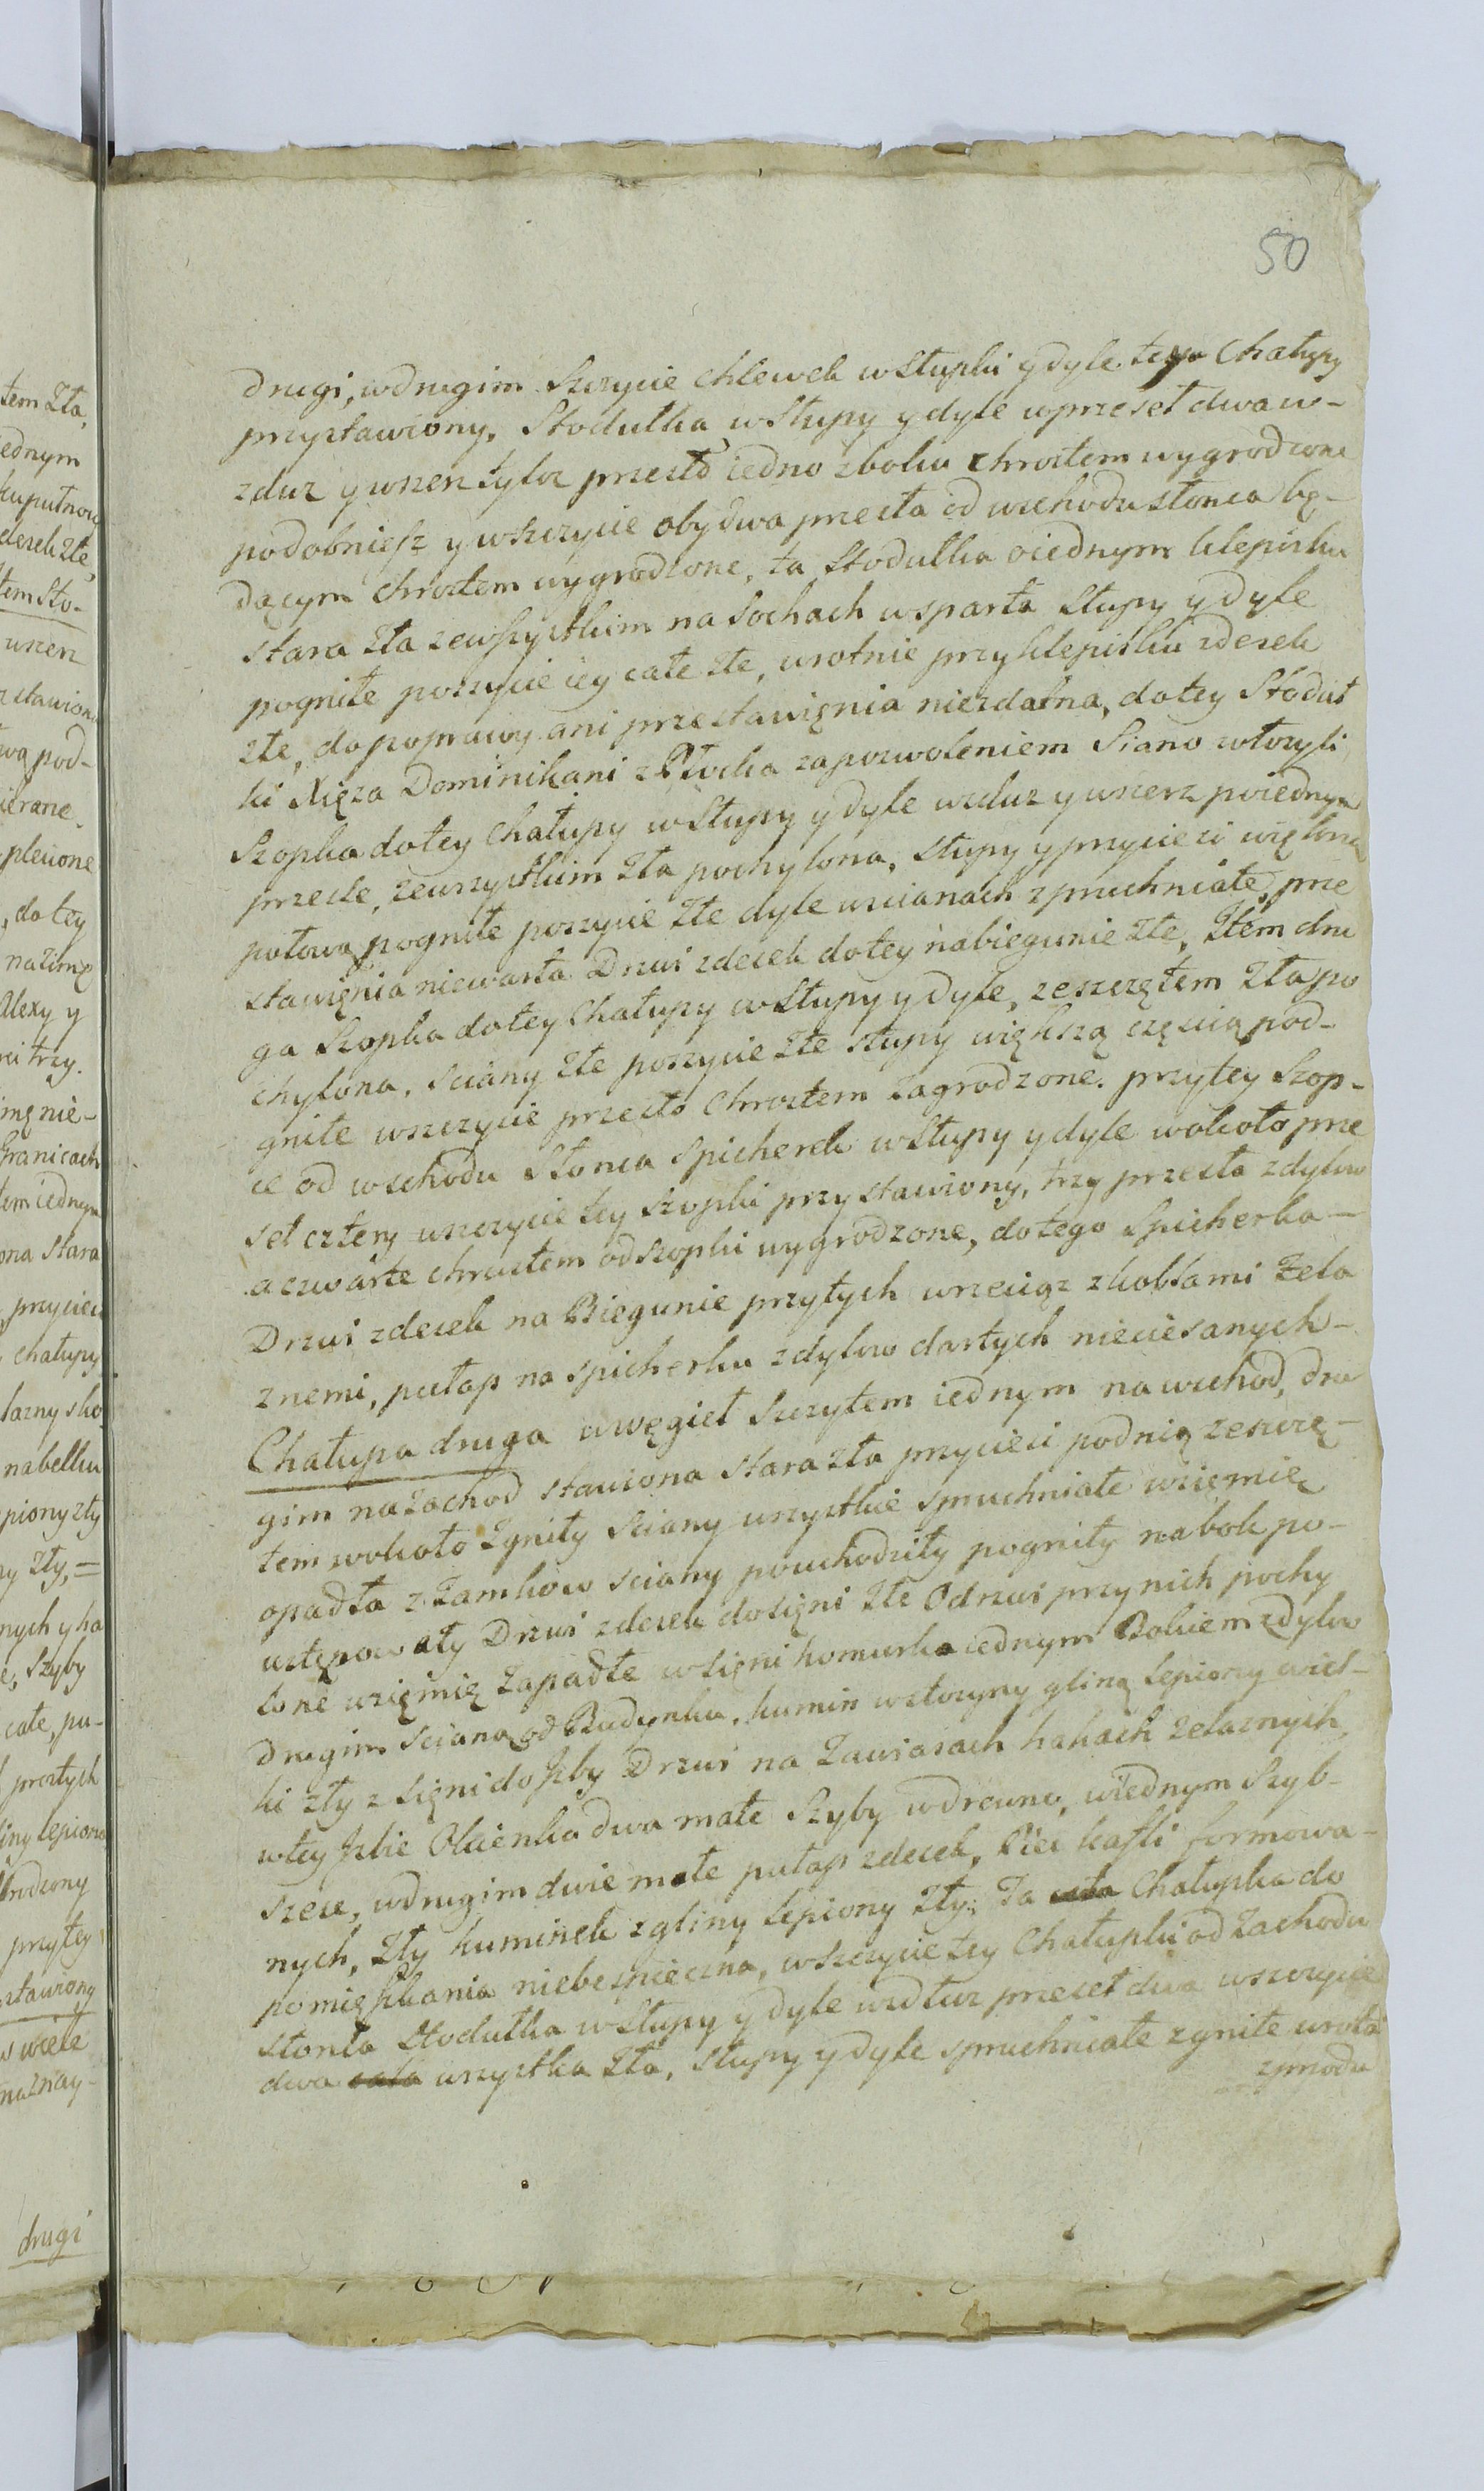 50
drugi, w drugim Szczycie chlewek w Stupki y dyle tego Chałupy
przystawiony, Stodułka w Słupy y dyle w przeseł dwa w-
zduz y wszerz tyloz przesło iedno z boku chrostem wygrodzone
podobniesz y w Szczycie obydwa przesła od wschodu słonca bę-
dącym chrostem wygrodzone, ta Stodułka o iednym klepisku
stara zła zewszystkim na Sochach wsparta Słupy y dyle
pogniłe poszycie iey całe złe, wrotnie przy klepisku z desek
złe, do poprawy ani przestawięnia niezdatna, do tey Stoduł
ki Xięza Dominikani z Płocka za pozwoleniem Siano włozyli
Szopka do tey Chałupy w Słupy y dyle wzduz y wszerz po iednym
przesle, zewszystkim zła pochylona, Słupy y przyciesi więkzną
połową pogniłe poszycie złe dyle w scianach zpruchniałe, prze
stawięnia niewarta Drzwi z desek do tey na biegunie złe, Item dru
ga Szopka do tey Chałupy w Słupy y dyle, ze szczętem zła po
chylona, sciany złe poszycie złe słupy większą częscią pod-
gniłe w szczycie przesło Chrostem zagrodzone. przy tey Szop-
ce od wschodu Słonca Spicherek w Słupy y dyle wokoło prze
seł cztery w szczycie tey szopki przystawiony, trzy przesła z dylow
a czwarte chrustem od szopki wygrodzone, do tego Spicherka-
Drzwi z desek na Biegunie przy tych wrzeciąz z koblami Zela
znemi, pułap na spicherku z dylow dartych nieciesanych-
Chałupa druga w węgieł Szczytem iednym na wschod, dru
gim na Zachod stawiona stara zła przyciesi pod nią ze szczę-
tem wokoło Zgniły Sciany wszystkie spruchniałe w zięmię
opadła z Zamkow sciany powychodziły pogniły na bok po-
ustępowały Drzwi z desek do sięni złe Odrzwi przy nich pochy
lone w zięmię zapadłe w sięni komurka iednym Bokiem z dylow
drugim Sciana od Budynku, kumin w stozyny gliną lepiony wiel-
ki zły z Sięni do Jzby Drzwi na Zawiasach hakach zelaznych,
w tey Jzbie Okienka dwa małe Szyby w drewno, w iednym Szyb-
szesc, w drugim dwie małe pułap z desek, Piec kafli formowa-
nych, zły kuminek z gliny lepiony zły. Ta cała Chałupka do
pomięszkania niebespieczna, w Szczycie tey Chałupki od Zachodu
słonca Stodułka w Słupy y dyle wzdłuz przeseł dwa w szczycie
dwa cała wszystka zła, Słupy y dyle spruchniałe zgniłe wrota
z przodu
tem zła,
iednym
desek złe,
Item Sto-
wszerz
pod-
plecione
, do tey
na zimę
Alexy y
trzy.
nie-
Granicach
stara
przyciesi
chałupy
na belku
zły
y zły,=
nych y ha
Szyby
całe, pu-
prostych
gliny lepiony
przy tey
stawiony
drugi